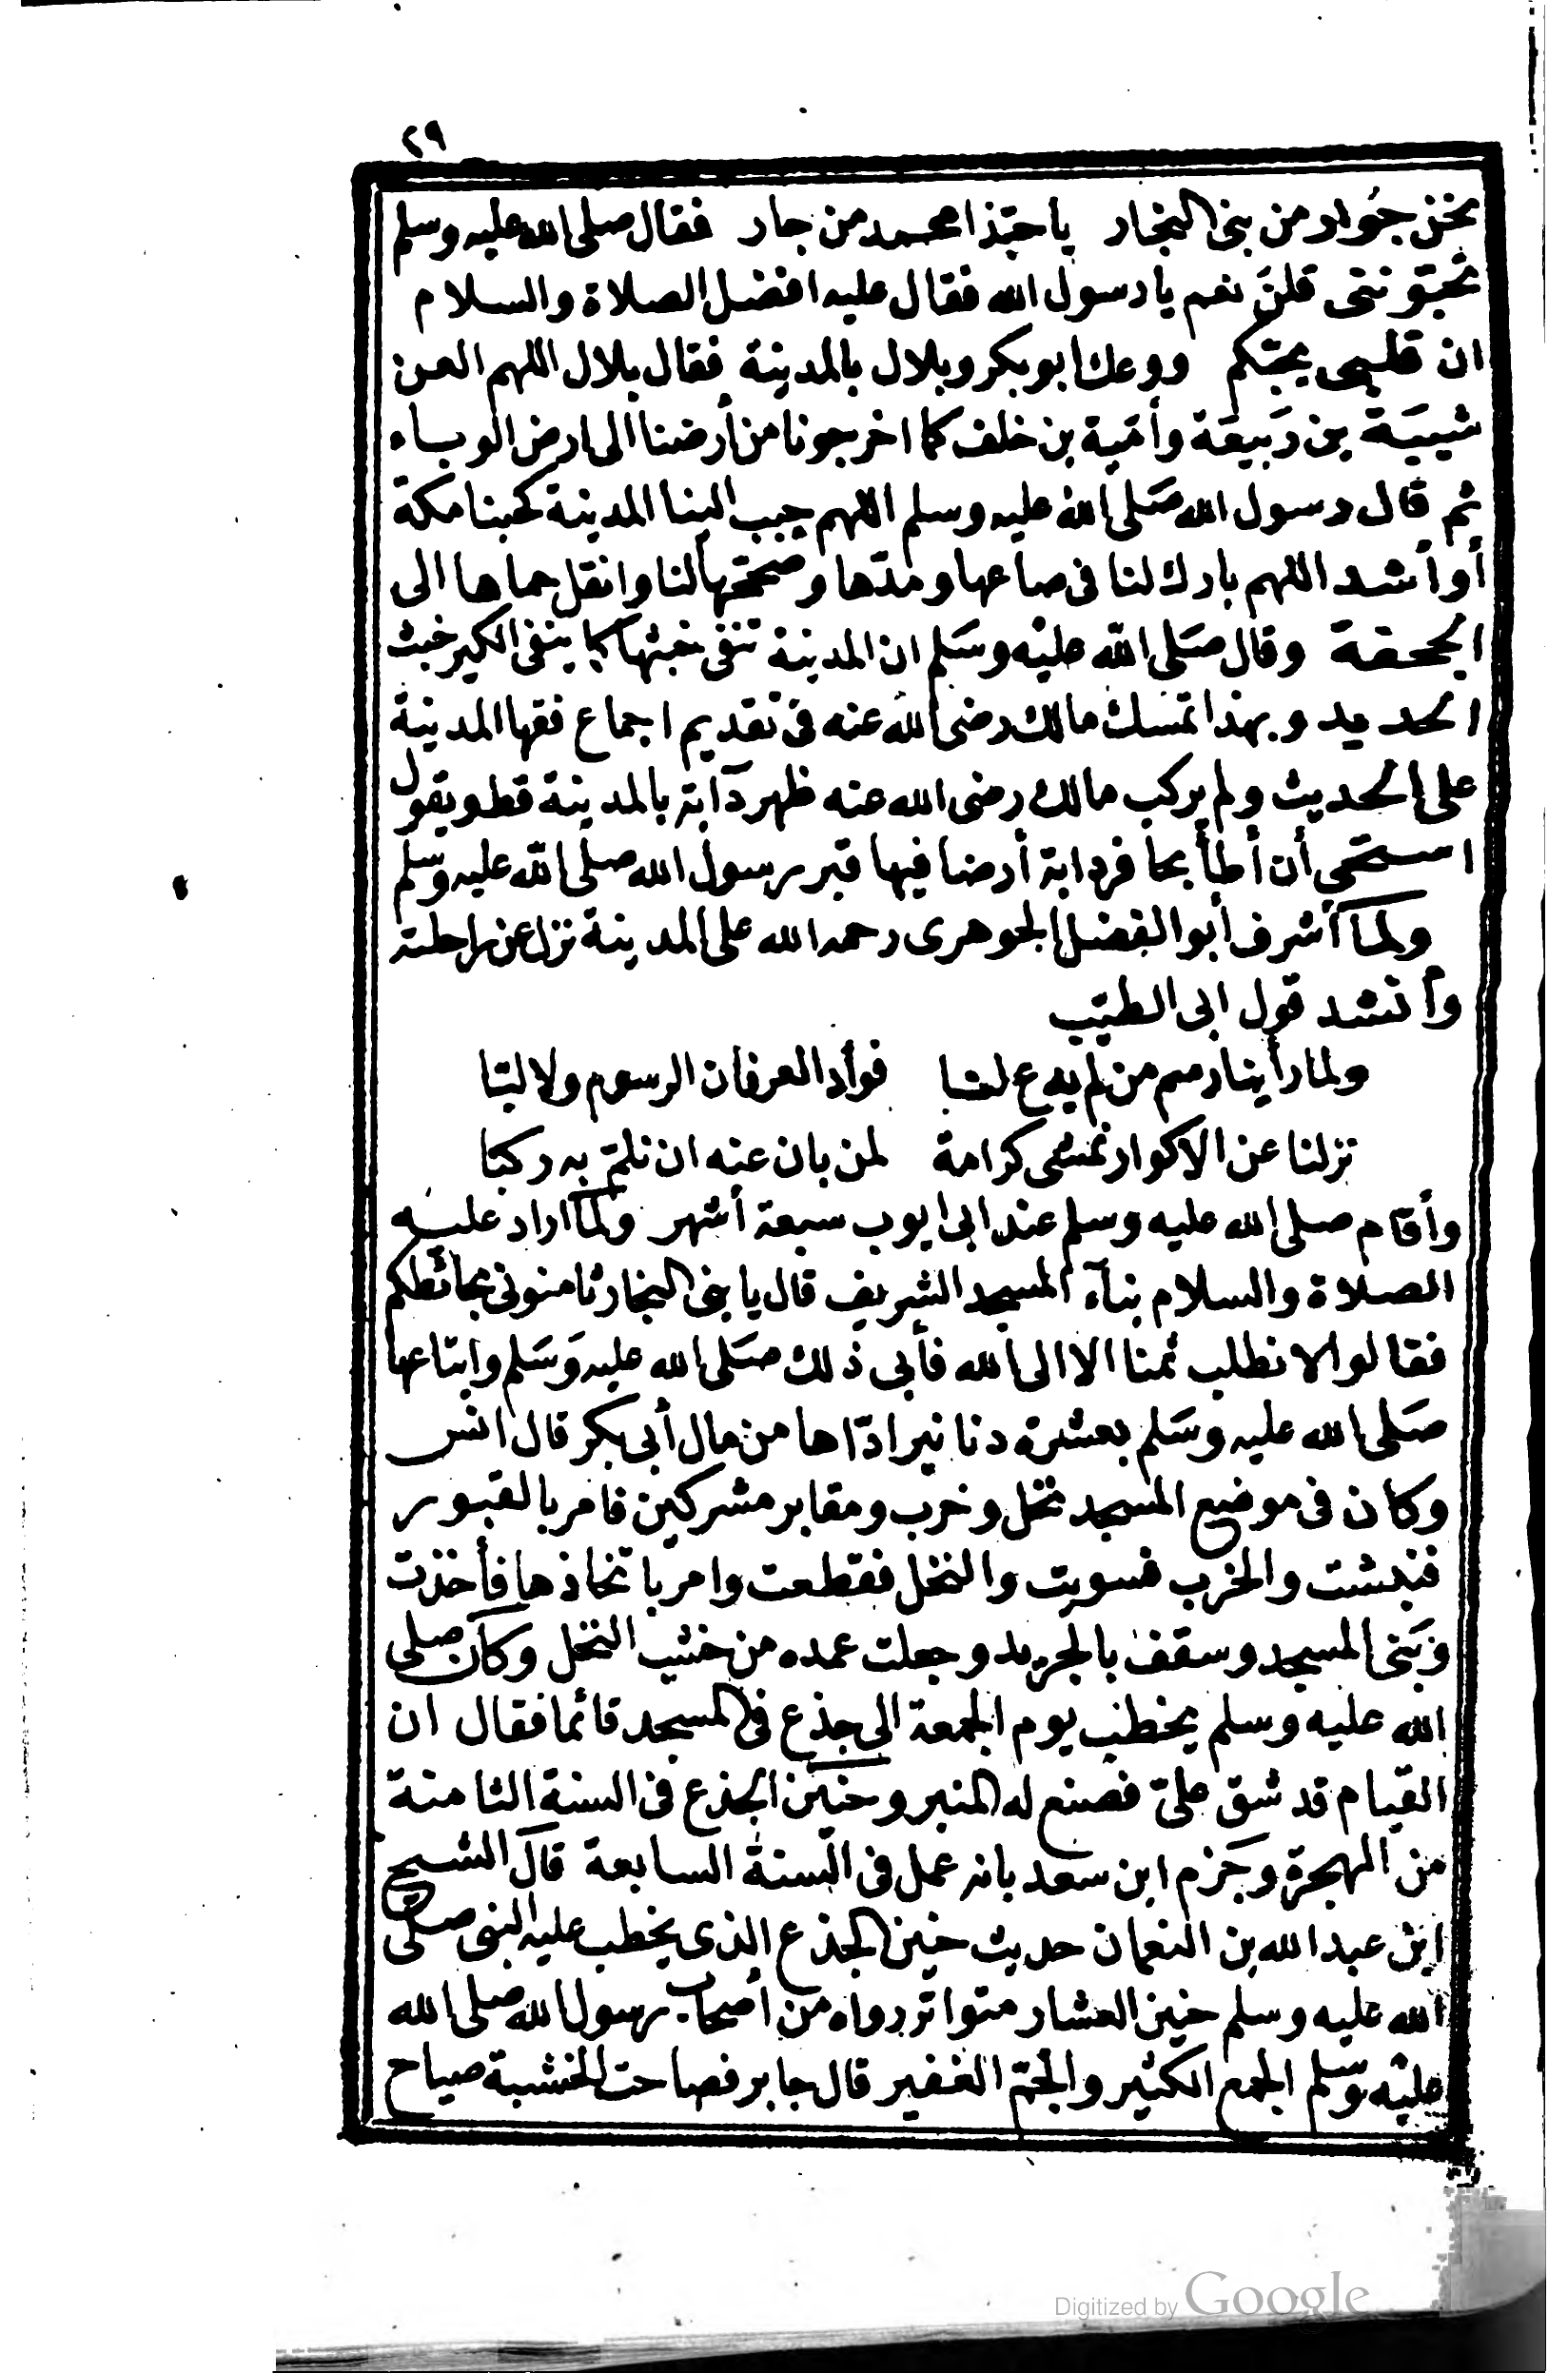 ٢٩
نحن جَوار من بنى النجار يا حبّذا محمد من جار فقال صلى الله عليه وسلم
تحبّوننى قلنَ نعم يا رسول الله فقال عليه افضل الصلاة والسلام
ان قلبى يحبّكم ووعك ابو بكر وبلال بالمدينة فقال بلال اللهم العن
شيبَة بن رَبيعَة وأميّة بن خلف كما اخرجونا من أرضنا الى ارض الوباء
ثم قال رسول الله صَلى الله عليه وسلم اللهم حبب الينا المدينة كحبنا مكة
أو أشد اللهم بارك لنا فى صاعها ومدّها وصححّها لنا وانقل حماها الى
الجحفة وقال صَلى الله عليْه وسَلم ان المدينة تنفى خبثها كما ينفى الكير خبث
الحديد وبهذا تمسك مالك رضى الله عنه فى تقديم اجماع فقها المدينة
على الحديث ولم يركب مالك رضى الله عنه ظهر دآبة بالمدينة قط ويقول
استحي أن أطأ بحافر دابة أرضا فيها قبر رسول الله صلى الله عليه وسلم
ولمآ أشرف أبو الفضل الجوهرى رحمه الله على المدينة نزل عن راحلته
وأنشد قول ابى الطيّب
ولما رأينا رسم من لم يدع لنا فوأدا لعرفان الرسوم ولا لبّا
نزلنا عن الاكوار نمشى كرامة لمن بان عنه ان نلمّ به ركبا
وأقام صلى الله عليه وسلم عند ابى ايوب سبعة أشهر ولمّا اراد عليه
الصلاة والسلام بنآء المسجد الشريف قال يا بنى النجار ثامنونى بحائطكم
فقالوا لا نطلب ثمنا الا الى الله فأبى ذلك صَلى الله عليه وَسَلم وابتاعها
صَلى الله عليه وسَلم بعشرة دنانير ادّاها من مال أبى بكر قال انس
وكان فى موضع المسجد نخل وخرب ومقابر مشركين فامر بالقبور
فنبشت والخرب فسويت والنخل فقطعت وامر باتخاذها فأخذت
وَبَنى المسجد وسقف بالجريد وجعلت عمده من خشب النخل وكان صلى
الله عليه وسلم يخطب يوم الجمعة الى جذع فى المسجد قائما فقال ان
القيام قد شق علىّ فصنع له المنبر وحنين الجذع فى السنة الثامنة
من الهجرة وجَزم ابن سعد بانه عمل فى السنة السابعة قال الشيخ
ابن عبد الله بن النعمان حديث حنين الجذع الذى يخطب عليه النبى صلى
الله عليه وسلم حنين العشار متواتر رواه من أصحاب رسول الله صلى الله
عليه وسلم الجمع الكثير والجمّ الغفير قال جابر فصاحت الخشبة صياح
Digitized by Google